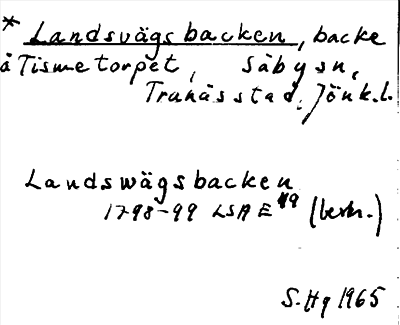 * Landsvägsbacken, backe
å Tismetorpet, Säbysn,
Tranås stad, Jönk.l.
Landswägsbacken
1798-99 LSA E49 (beskr.)
S. Hg 1965